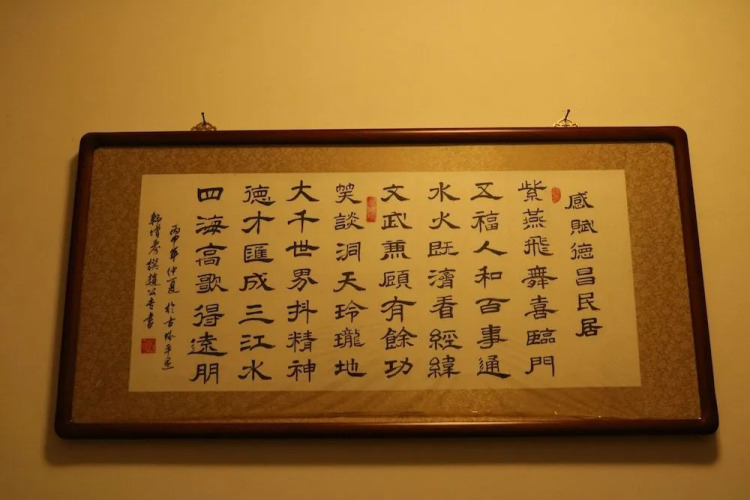 感賦德昌民居
紫燕飛舞喜臨門
五福人和百事通
水火既濟看經緯
文武兼顧有餘功
笑談洞天玲瓏地
大千世界抖精神
德才匯成三江水
四海高歌得遠朋
丙申年仲夏於古